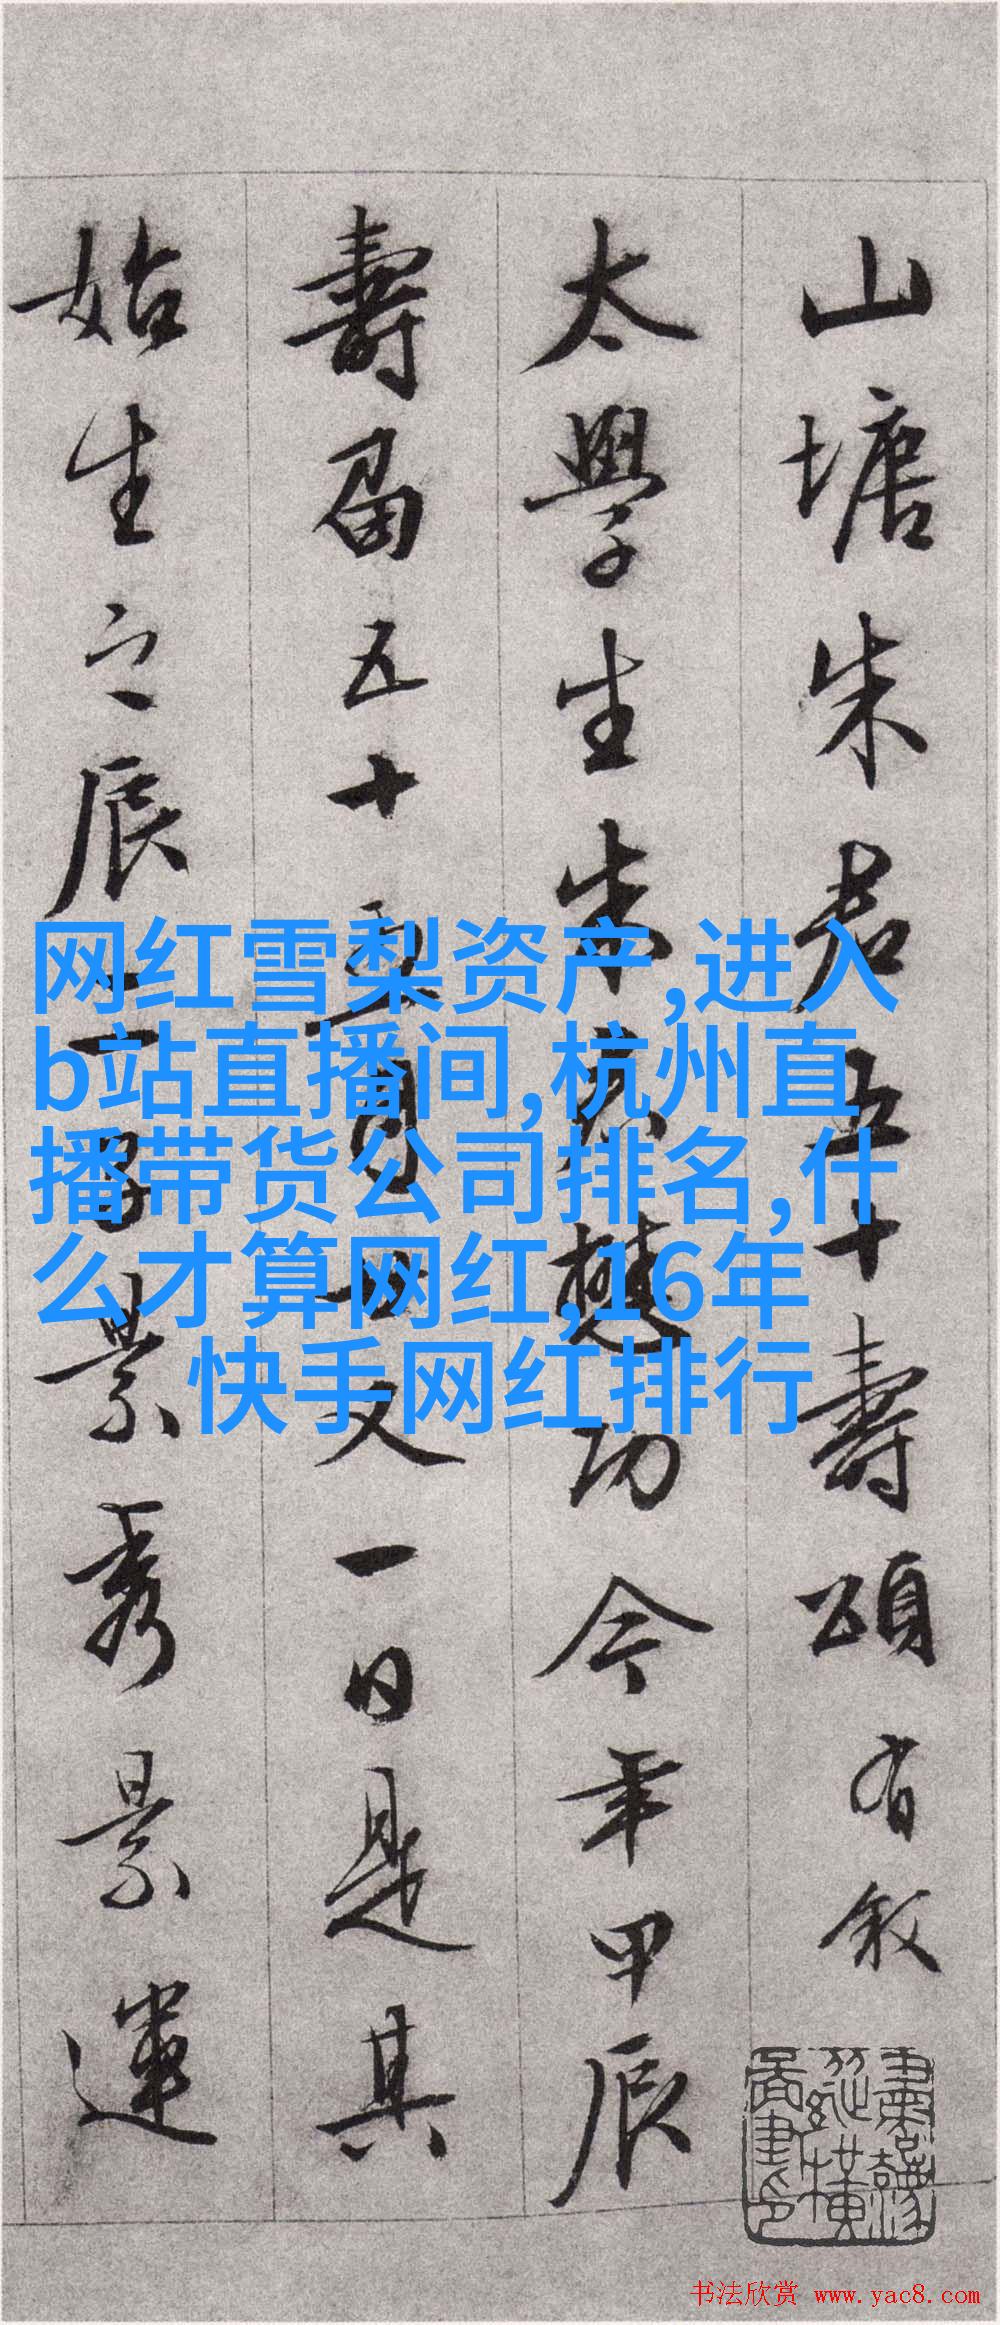 山塘朱君五十壽頌有敘
太學生朱懋功今年甲辰
壽届五十又一日是其
始生之辰景秀景運
网红雪梨资产,进入
b站直播间,杭州直
播带货公司排名,什
么才算网红,16年
快手网红排行
书法欣赏 www.yac8.com